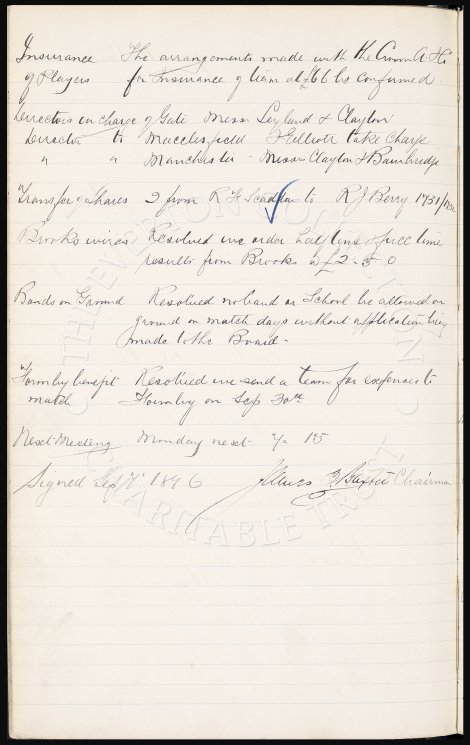 Insurance The arrangements made with the Crown A. Co
of Players for Insurance of team at £66 be confirmed.
Directors in charge of Gate Messrs Leyland & Clayton
Director to Macclesfield J Elliott take charge
" " Manchester - Messrs Clayton & Bainbridge
Transfer of Shares 2 from R F to R J Berry 1731/1732
Brooks wires Resolved we order half time & full time
results from Brooks @ £2-5-0
Bands on Ground Resolved no band or School be allowed on
ground on match days without application being
made to the Board.
Formby benefit Resolved we send a team for expenses to
match Formby on Sep 30th
Next Meeting Monday next 7-15
Signed Sep 1896 Baxter Chairman
THE EVERTON COLLECTION CHARITABLE TRUST